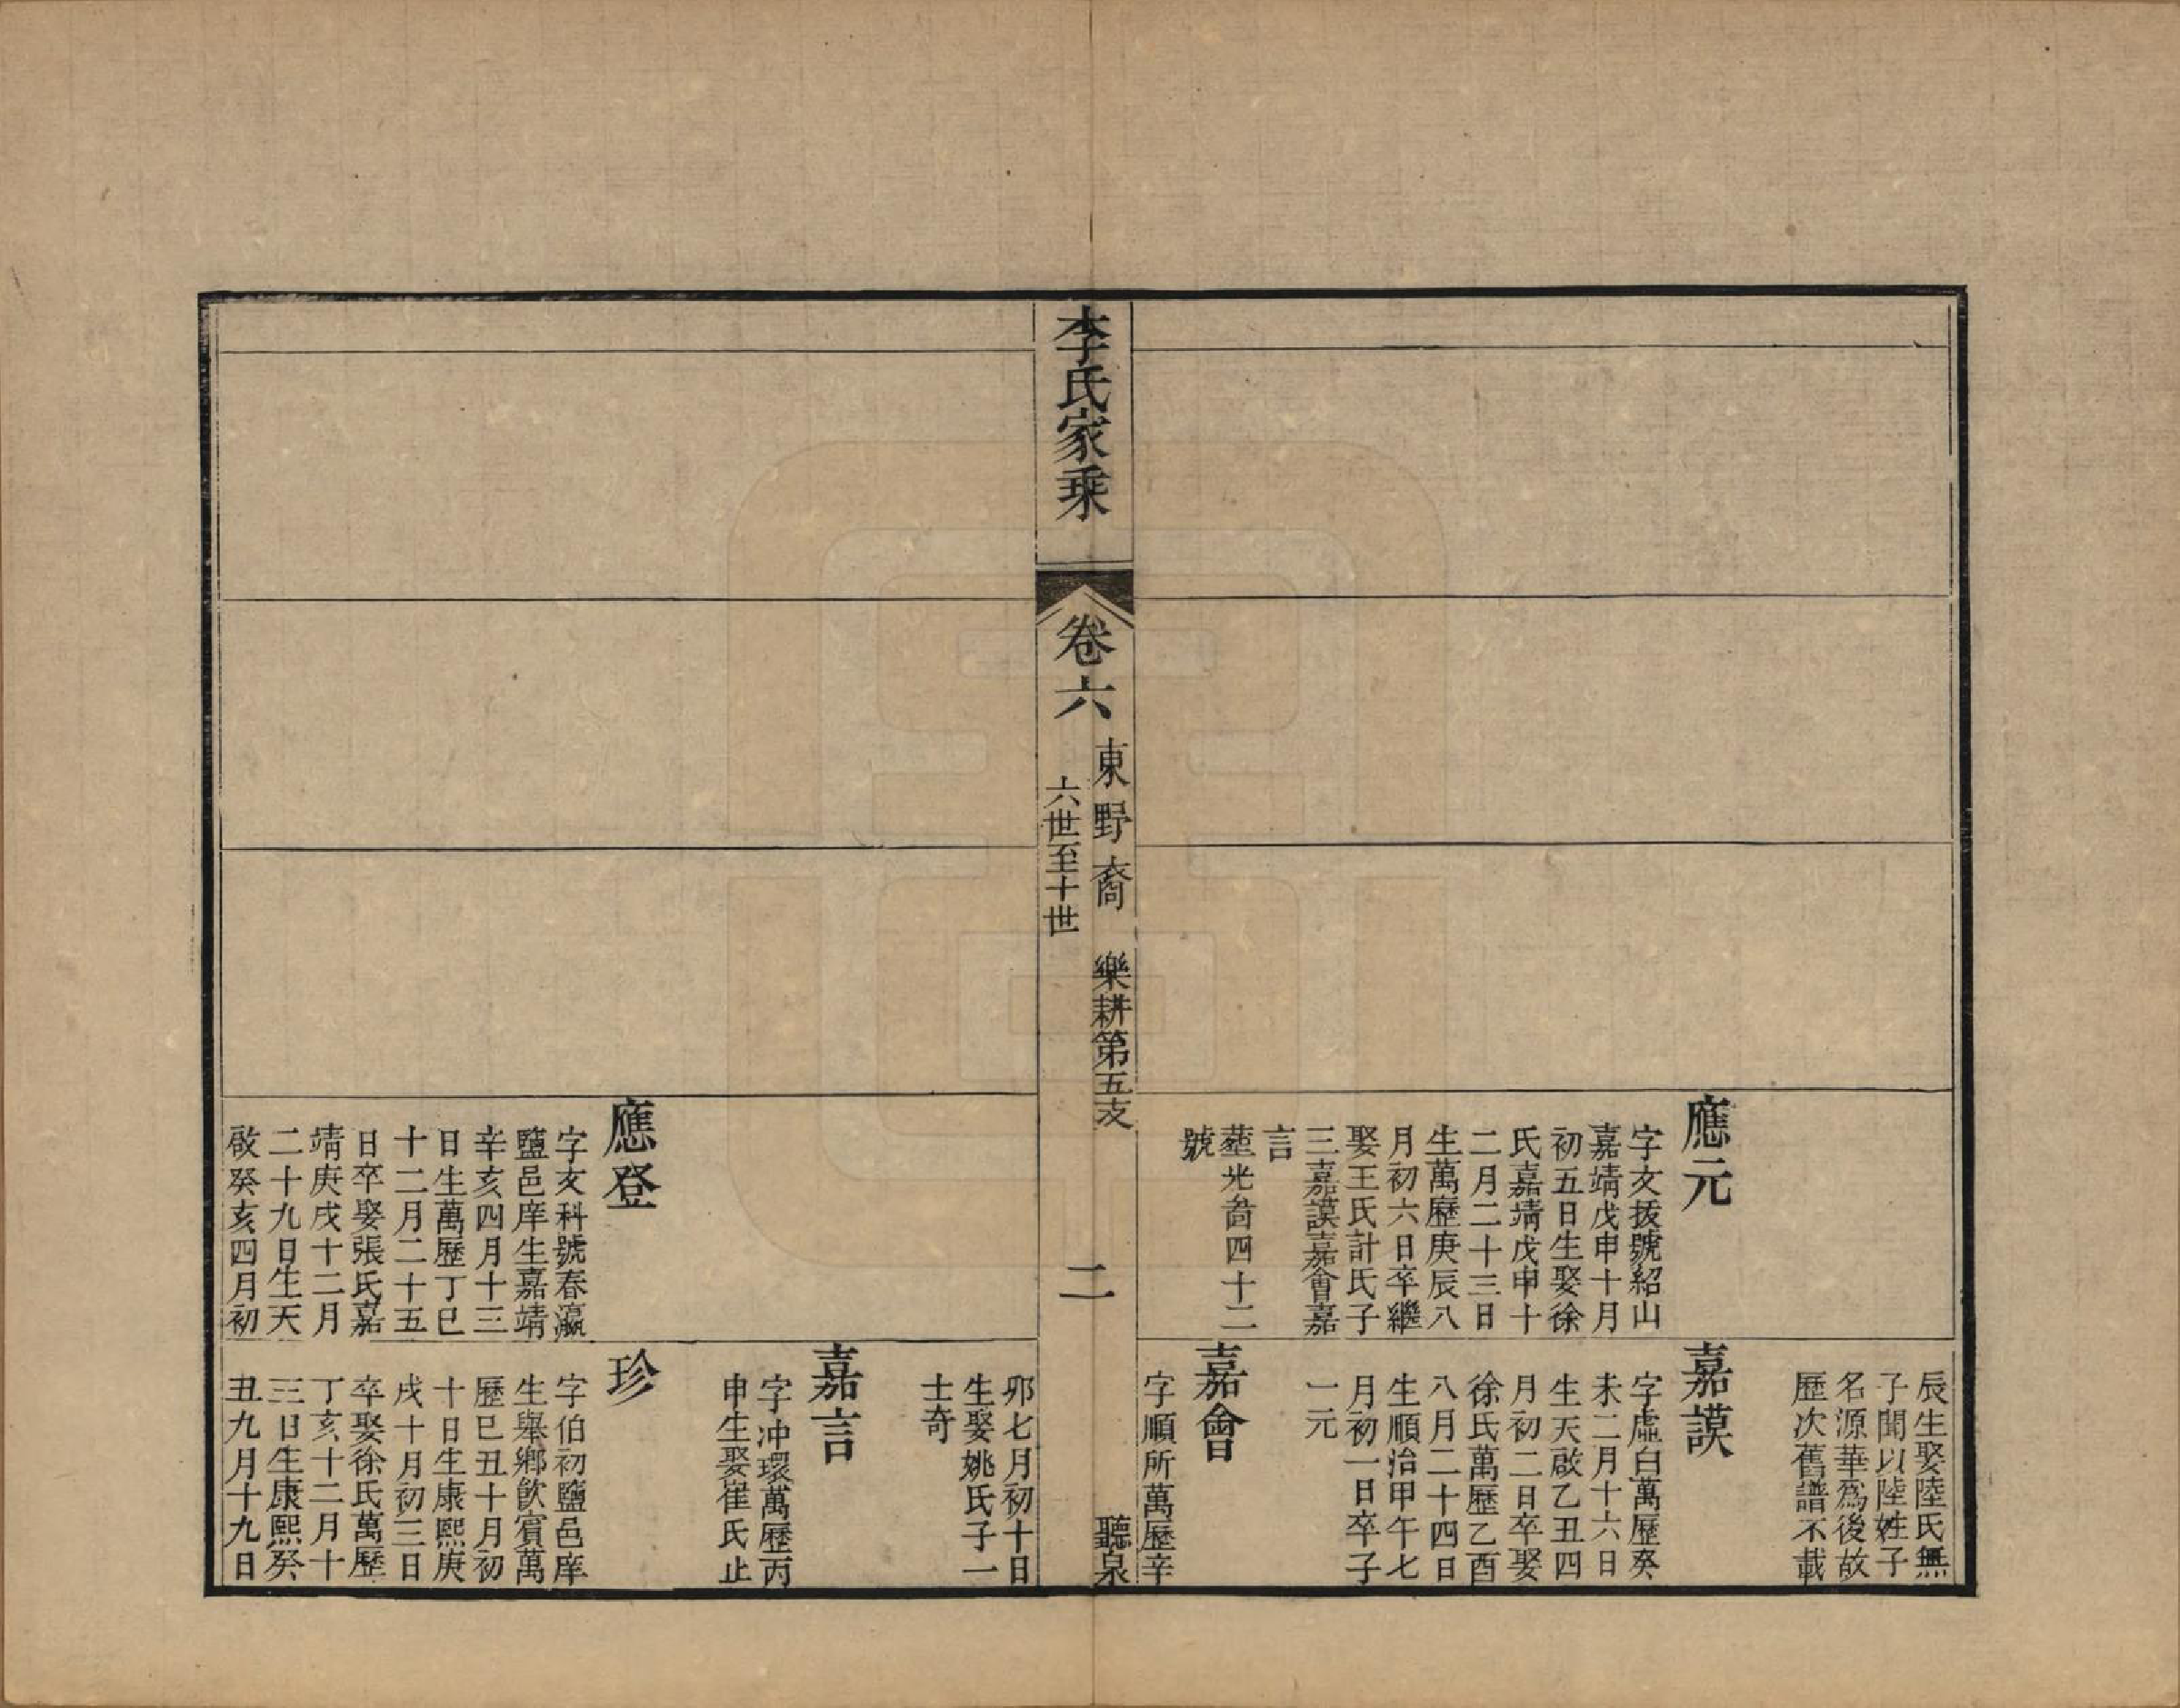 應元
字文拔號紹山
嘉靖戊申十月
初五日生娶徐
氏嘉靖戊申十
二月二十三日
生萬歷庚辰八
月初六日卒繼
娶王氏計氏子
三嘉謨嘉會嘉
言
塟光啚四十二
號
辰生娶陸氏無
子聞以陸姓子
名源華爲後故
歷次舊譜不載
嘉謨
字虛白萬歷癸
未二月十六日
生天啟乙丑四
月初二日卒娶
徐氏萬歷乙酉
八月二十四日
生順治甲午七
月初一日卒子
一元
嘉會
字順所萬歷辛
李氏家乘
卷六
東野裔
樂耕第五支
六世至十世
二
聽泉
應登
字文科號春瀛
鹽邑庠生嘉靖
辛亥四月十三
日生萬歷丁巳
十二月二十五
日卒娶張氏嘉
靖庚戌十二月
二十九日生天
啟癸亥四月初
卯七月初十日
生娶姚氏子一
士奇
嘉言
字冲環萬歷丙
申生娶崔氏止
珍
字伯初鹽邑庠
生舉鄉飲賓萬
歷巳丑十月初
十日生康熙庚
戌十月初三日
卒娶徐氏萬歷
丁亥十二月十
三日生康熙癸
丑九月十九日